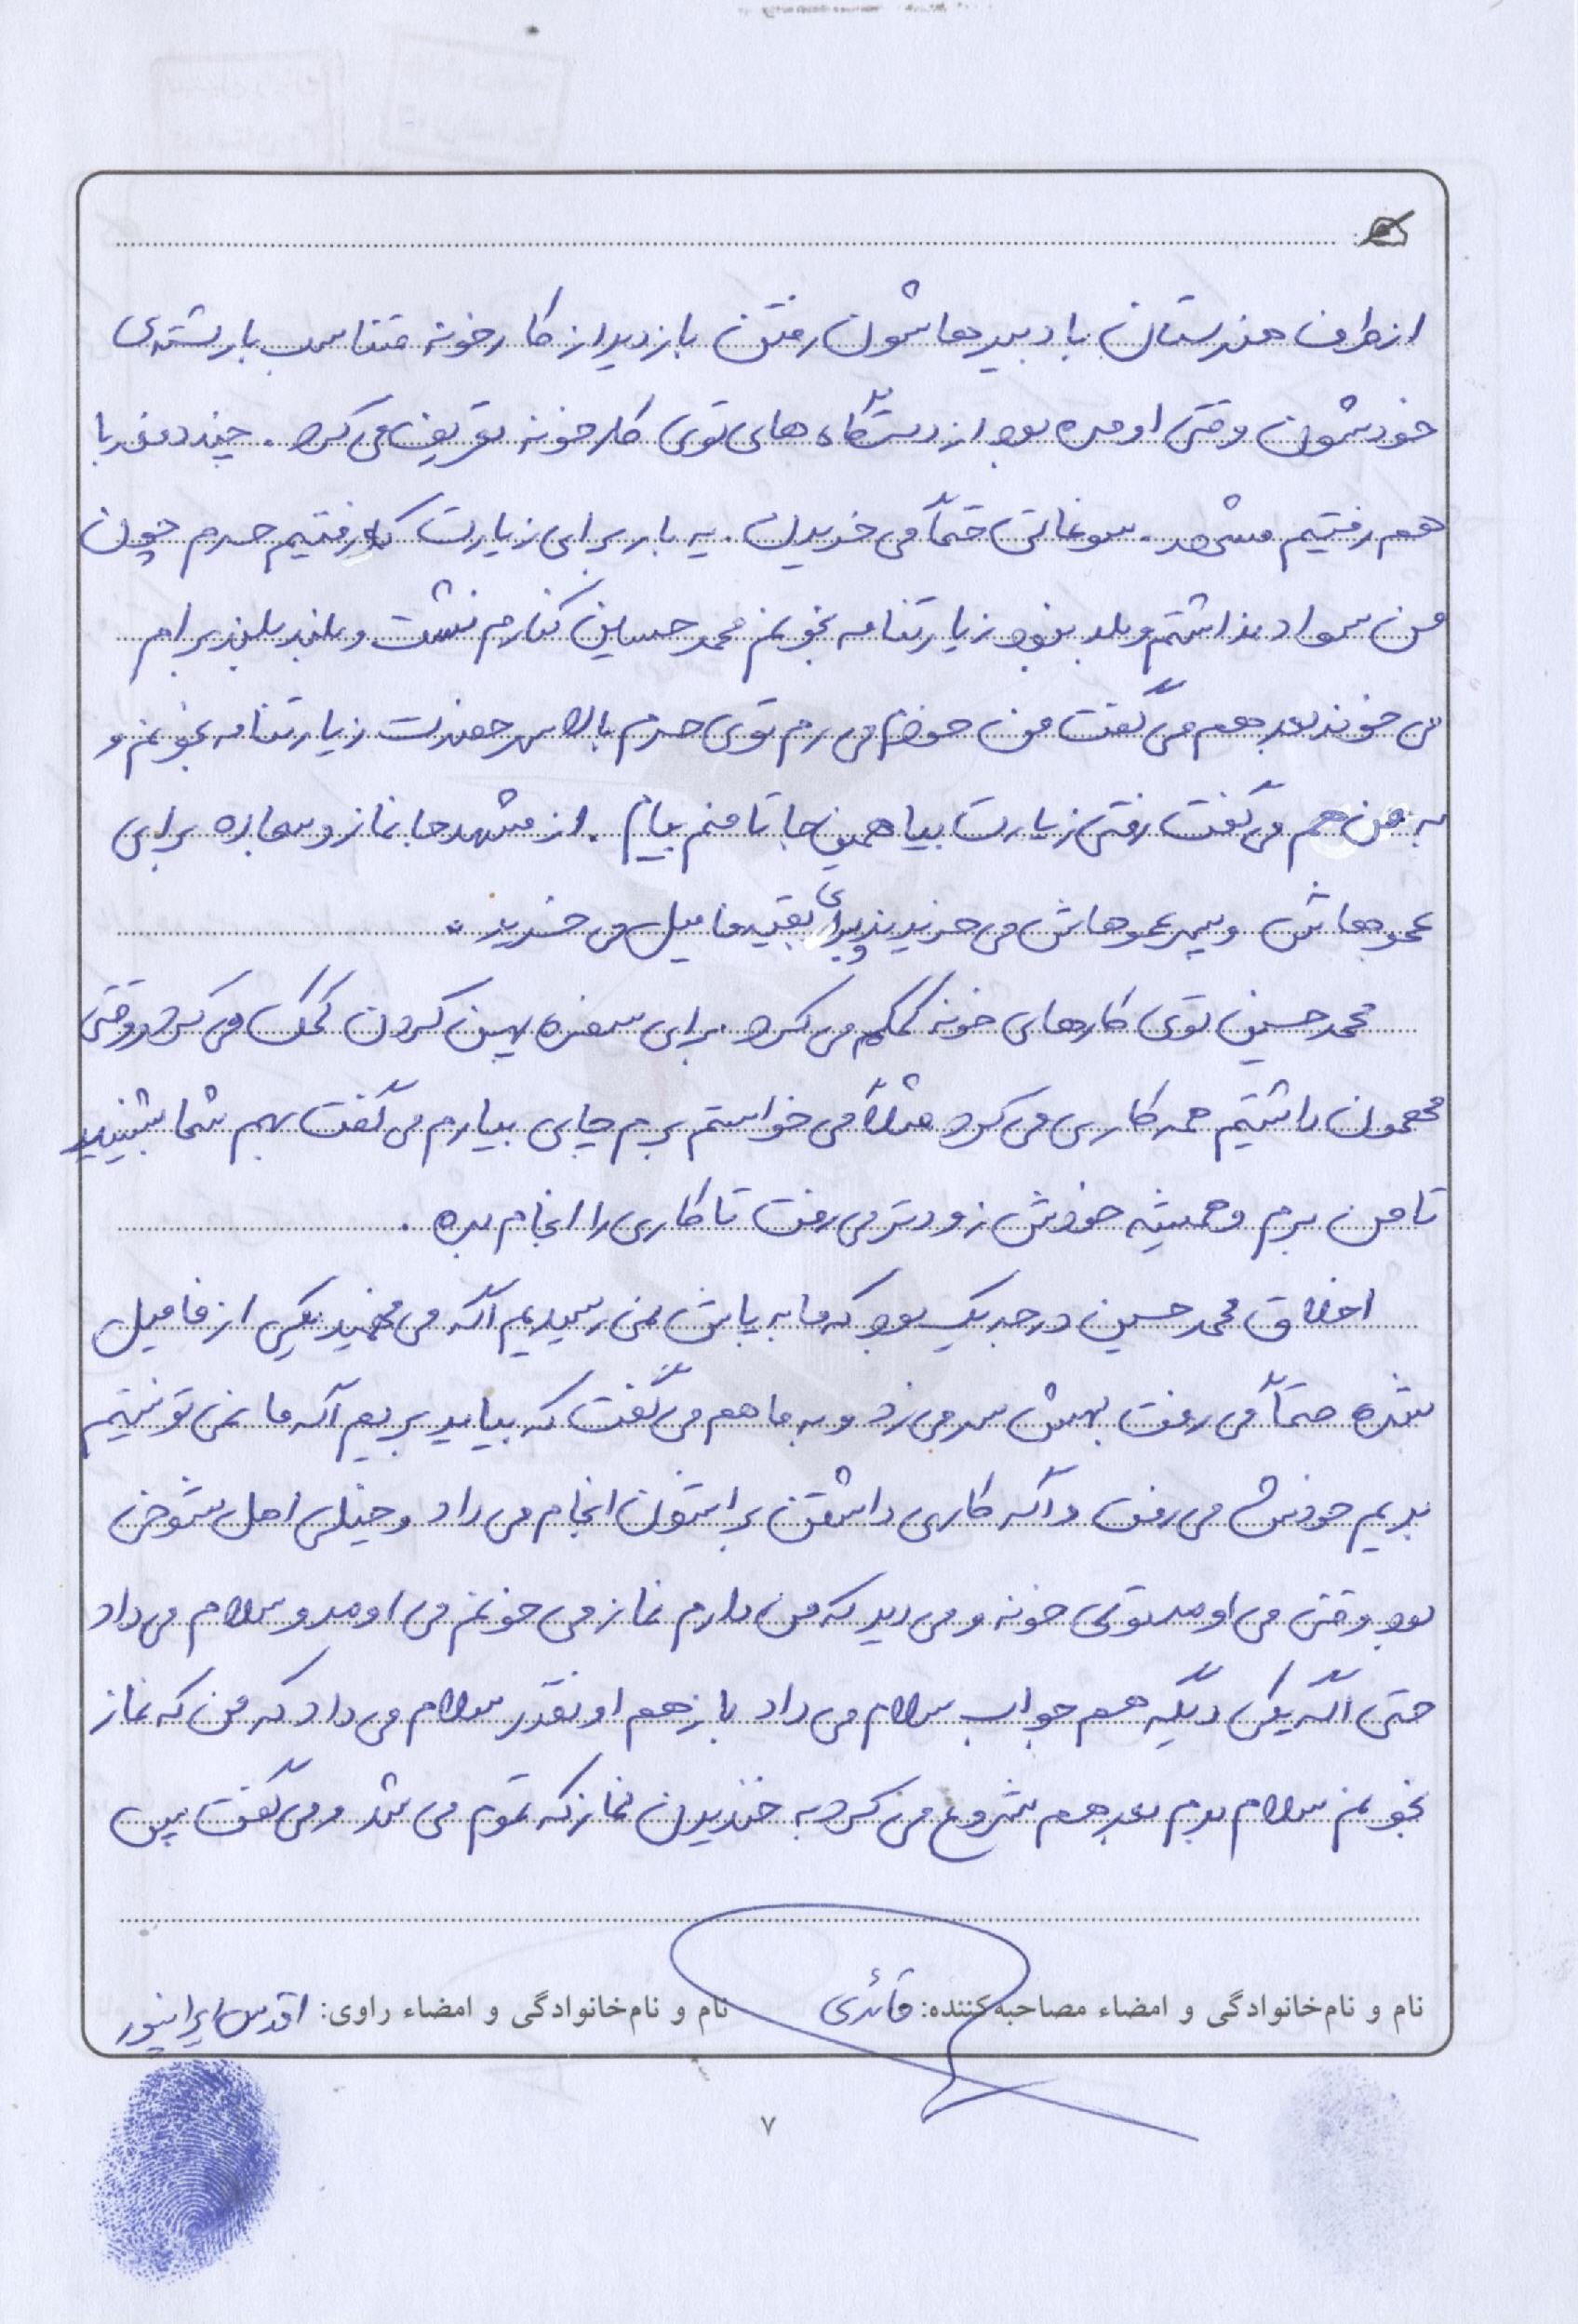 از طرف هنرستان با دبیرهاشون رفتن بازدید از کارخونه متناسب با رشته‌ی
خودشون وقتی اومده بود از دستگاه های توی کارخونه تعریف می کرد. چند دفعه با
هم رفتیم مشهد. سوغاتی حتماً می خریدن. یه بار برای زیارت که رفتیم حرم چون
من سواد نداشتم و بلد نبودم زیارتنامه بخونم محمد حسین کنارم نشست و بلند بلند برام
می خوند بعد هم می گفت من خودم می رم توی حرم بالا سر حضرت زیارتنامه بخونم و
به من هم می گفت رفتی زیارت بیا همین جا تا منم بیام. از مشهد جانماز و سجاده برای
عموهاش و پسر عموهاش می خرید و برای بقیه فامیل می خرید.
محمد حسین توی کارهای خونه کمکم می کرد برای سفره پهن کردن کمک می کرد و وقتی
مهمون داشتیم همه کاری می کرد مثلاً می خواستم برم چایی بیارم می گفت بهم شما بشینید
تا من برم و همیشه خودش زودتر می رفت تا کاری را انجام بده.
اخلاق محمد حسین درجه یک بود که ما به پاش نمی رسیدیم اگه می فهمید یکی از فامیل
شده حتماً می رفت بهش سر می زد و به ما هم می گفت که بیاید بریم اگه ما نمی تونستیم
بریم خودش می رفت و اگه کاری داشتن براشون انجام می داد و خیلی اهل شوخی
بود وقتی می اومد توی خونه و می دید که من دارم نماز می خونم می اومد و سلام می داد
حتی اگه یکی دیگه هم جواب سلام می داد بازهم اونقدر سلام می داد که من که نماز
بخونم سلام بدم بعد هم شروع می کرد به خندیدن نماز که تموم می شد و می گفت ببین
نام و نام‌خانوادگی و امضاء مصاحبه‌کننده: قائدی نام و نام‌خانوادگی و امضاء راوی: اقدس ایرانپور
۷